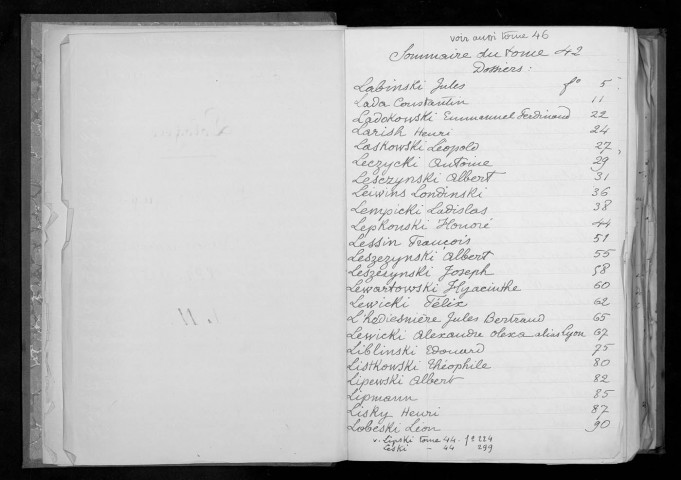 voir aussi tome 46
Sommaire du tome 42
Dossiers :
Labinski Jules fo 5
Lada Constantin 11
Ladokowski Emmanuel Ferdinand 22
Larish Henri 24
Laskowski Léopold 27
Leczycki Antoine 29
Lesczynski Albert 31
Leiwins Londinski 36
Lempicki Ladislas 38
Lepkonski Honoré 44
Lessin François 51
Leszezynski Albert 55
Leszesynski Joseph 58
Lewartowski Hyacinthe 60
Lewicki Félix 62
L'hodiesnière Jules Bertrand 65
Lewicki Alexandre Olexa alias Lyon 67
Liblinski Edouard 75
Listkowski Théophile 80
Lipewski Albert 82
Lipmann 85
Lisky Henri 87
Lobeski Léon 90
v. Lipski tome 44 - fo 224
Leski - 44 299